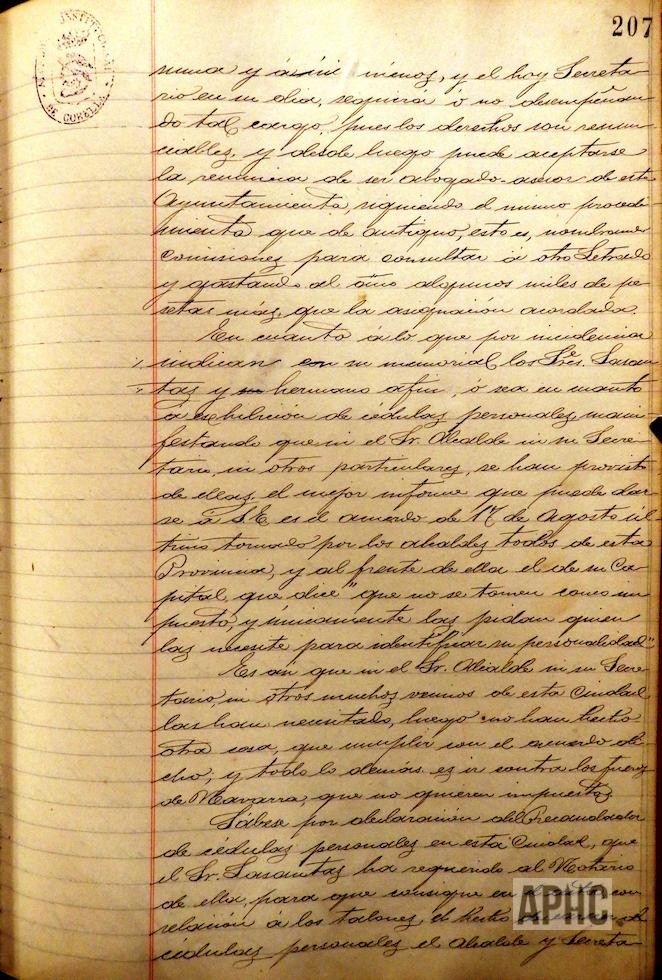 207
AYUNT. CONSTITUCIONAL
DE CORELLA
nunca y aún menos, y el hoy Secreta-
rio en su dia, seguirá ó no desempeñan-
do tal cargo, pues los derechos son renun-
ciables, y desde luego puede aceptarse
la renuncia de ser abogado asesor de este
Ayuntamiento, siguiendo el mismo procedi-
miento que de antiguo, esto es, nombramdo
comisiones para consultar á otro Letrado
y gastando al año algunos miles de pe-
setas más, que la asignación acordada.
En cuanto á lo que por incidencia
indican en su memorial los Sres. Sasan-
tas y hermano afin, ó sea en cuanto
á exhibición de cédulas personales, mani-
festando que ni el Sr. Alcalde ni su Secre-
tario, ni otros particulares, se han provisto
de ellas, el mejor informe que puede dar-
se á S.E. es el acuerdo de 17 de Agosto úl-
timo tomado por los alcaldes todos de esta
Provincia, y al frente de ella el de su Ca-
pital, que dice "que no se tomen como im-
puesto, y únicamente las pidan quien
las necesite para identificar su personalidad"
Es asi que ni el Sr. Alcalde ni su Secre-
tario, ni otros muchos vecinos de esta Ciudad
las han necesitado, luego no han hecho
otra cosa, que cumplir con el acuerdo di-
cho, y todo lo demás es ir contra los fueros
de Navarra, que no quieren impuestos.
Sábese por declaración del Recaudador
de cédulas personales en esta Ciudad, que
el Sr. Sasantas ha requerido al Notario
de ella, para que consigne en con
relación á los talones, el hecho de
cédulas personales el Alcalde y Secreta-
APHC